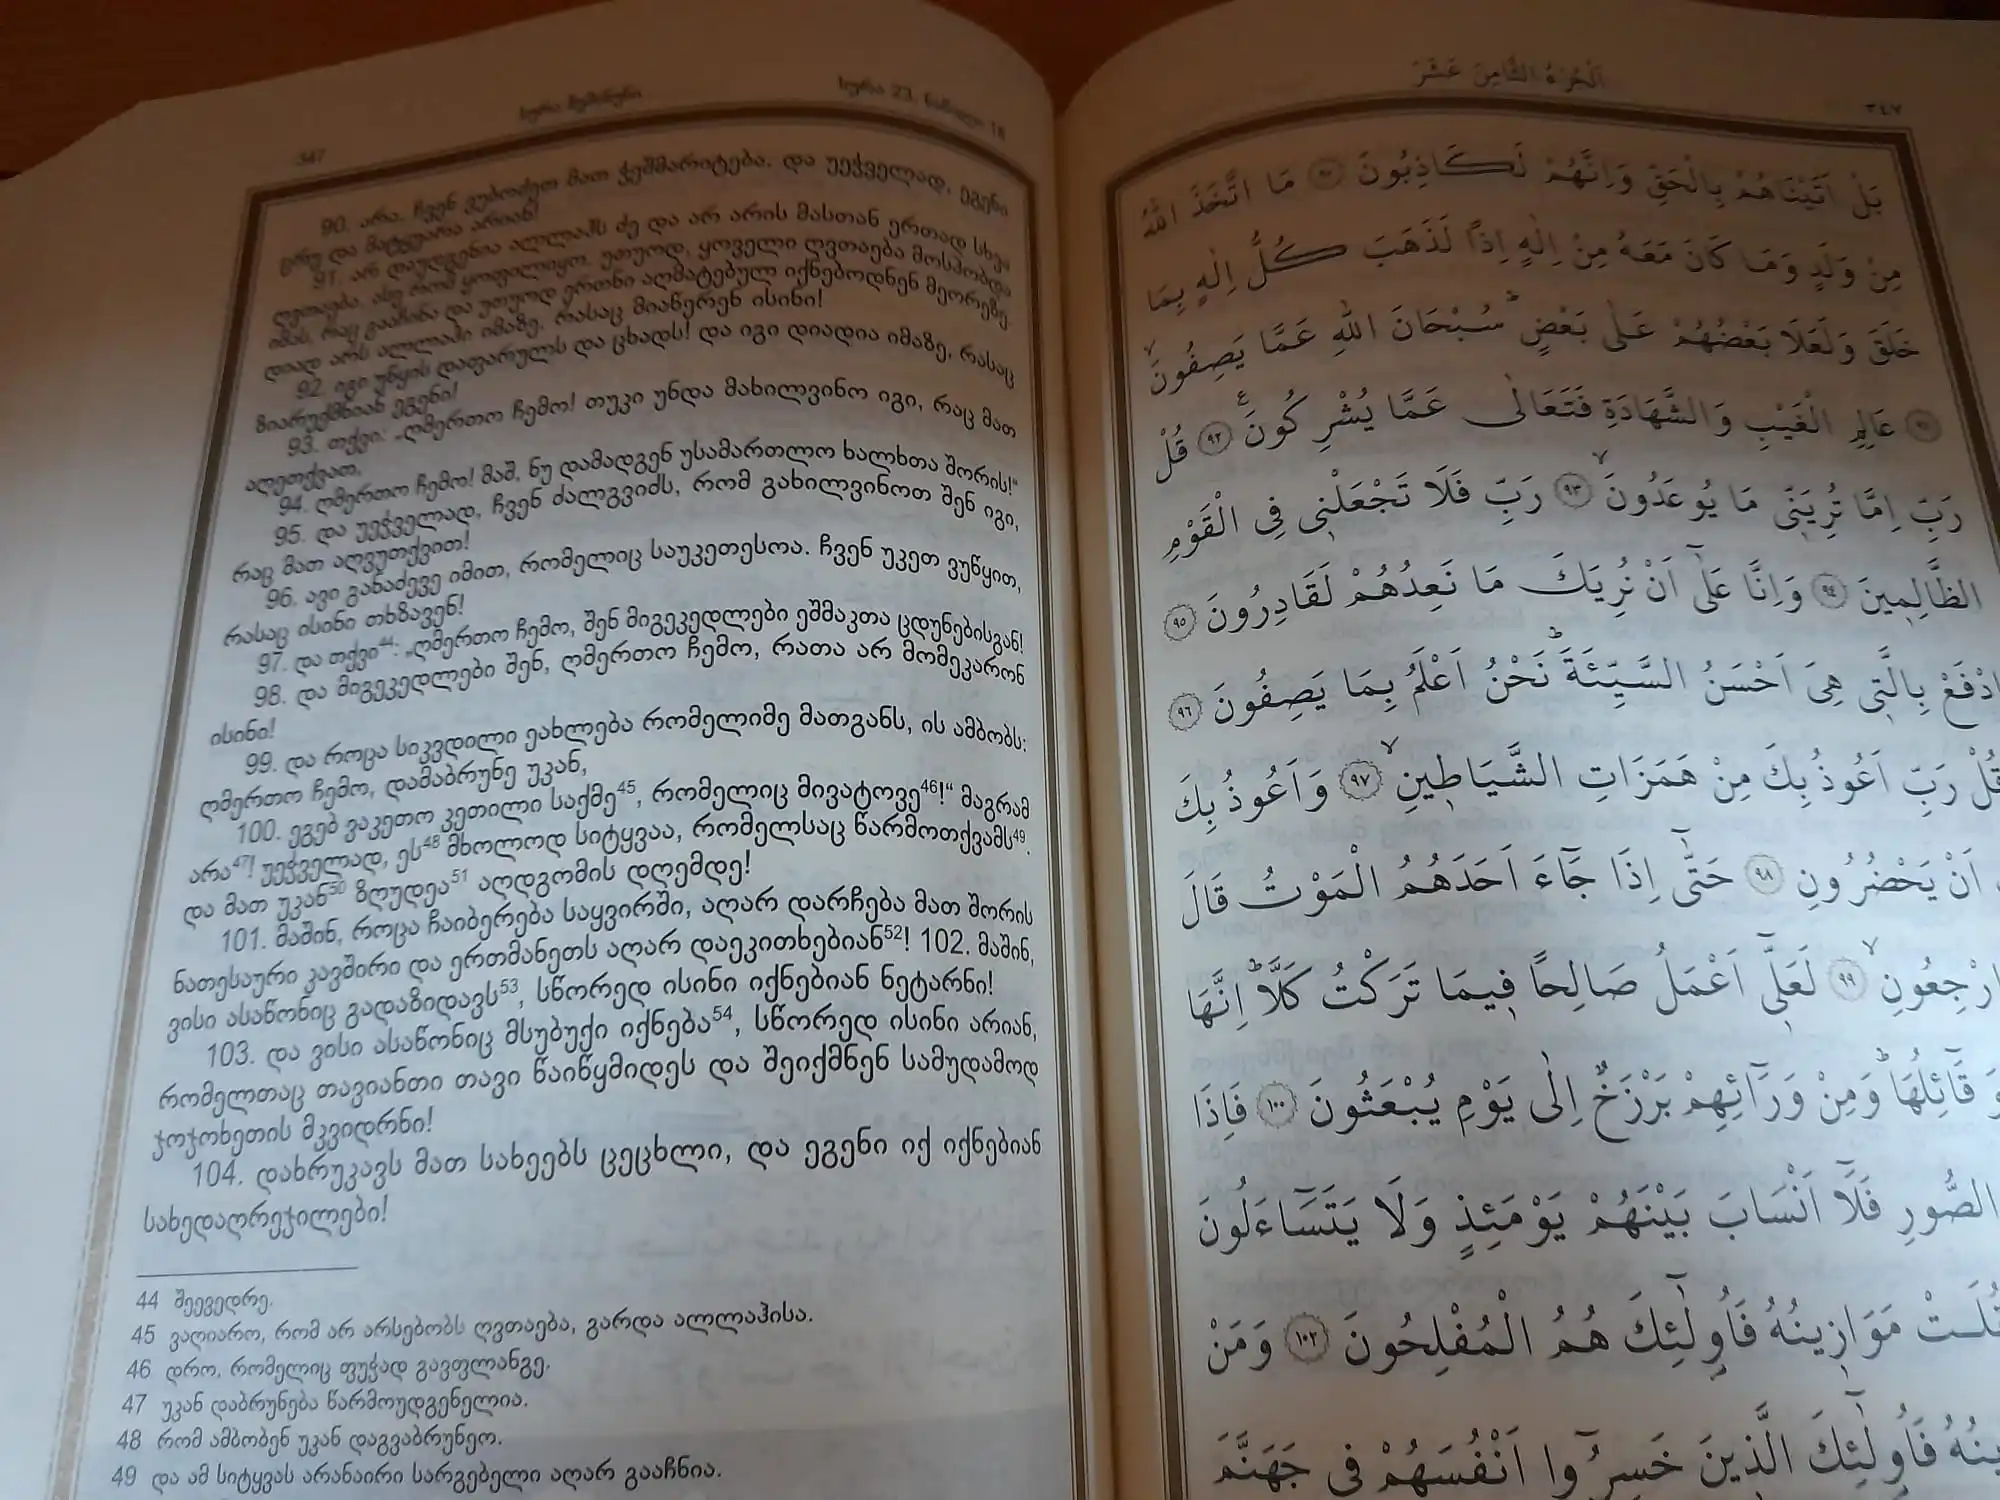 347
სურა მუმინუნი
სურა 23. ნაწილი 18
90. არა. ჩვენ ვუბოძეთ მათ ჭეშმარიტება. და უეჭველად, ეგენი
ცრუ და მატყუარა არიან!
91. არ დაუდგენია ალლაჰს ძე და არ არის მასთან ერთად სხვა
ღვთაება. ასე რომ ყოფილიყო. უთუოდ, ყოველი ღვთაება მოსპობდა
იმას, რაც გააჩინა და უთუოდ ერთნი აღმატებულ იქნებოდნენ მეორეზე.
დიად არს ალლაჰი იმაზე, რასაც მიაწერენ ისინი!
92. იგი უწყის დაფარულს და ცხადს! და იგი დიადია იმაზე, რასაც
ზიარუქმნიან ეგენი!
93. თქვი: „ღმერთო ჩემო! თუკი უნდა მახილვინო იგი, რაც მათ
აღეთქვათ,
94. ღმერთო ჩემო! მაშ, ნუ დამადგენ უსამართლო ხალხთა შორის!“
95. და უეჭველად, ჩვენ ძალგვიძს, რომ გახილვინოთ შენ იგი,
რაც მათ აღვუთქვით!
96. ავი განაძევე იმით, რომელიც საუკეთესოა. ჩვენ უკეთ ვუწყით,
რასაც ისინი თხზავენ!
97. და თქვი44: „ღმერთო ჩემო, შენ მიგეკედლები ეშმაკთა ცდუნებისგან!
98. და მიგეკედლები შენ, ღმერთო ჩემო, რათა არ მომეკარონ
ისინი!
99. და როცა სიკვდილი ეახლება რომელიმე მათგანს, ის ამბობს:
ღმერთო ჩემო, დამაბრუნე უკან,
100. ეგებ ვაკეთო კეთილი საქმე45, რომელიც მივატოვე46!“ მაგრამ
არა47! უეჭველად, ეს48 მხოლოდ სიტყვაა, რომელსაც წარმოთქვამს49.
და მათ უკან50 ზღუდეა51 აღდგომის დღემდე!
101. მაშინ, როცა ჩაიბერება საყვირში, აღარ დარჩება მათ შორის
ნათესაური კავშირი და ერთმანეთს აღარ დაეკითხებიან52! 102. მაშინ,
ვისი ასაწონიც გადაზიდავს53, სწორედ ისინი იქნებიან ნეტარნი!
103. და ვისი ასაწონიც მსუბუქი იქნება54, სწორედ ისინი არიან,
რომელთაც თავიანთი თავი წაიწყმიდეს და შეიქმნენ სამუდამოდ
ჯოჯოხეთის მკვიდრნი!
104. დახრუკავს მათ სახეებს ცეცხლი, და ეგენი იქ იქნებიან
სახედაღრეჯილები!
44 შეევედრე.
45 ვაღიარო, რომ არ არსებობს ღვთაება, გარდა ალლაჰისა.
46 დრო, რომელიც ფუჭად გავფლანგე.
47 უკან დაბრუნება წარმოუდგენელია.
48 რომ ამბობენ უკან დაგვაბრუნეო.
49 და ამ სიტყვას არანაირი სარგებელი აღარ გააჩნია.
اَلْجُزْءُ الثَّامِنَ عَشَرَ
٣٤٧
بَلْ اَتَيْنَاهُمْ بِالْحَقِّ وَاِنَّهُمْ لَكَاذِبُونَ ٩٠ مَا اتَّخَذَ اللّٰهُ
مِنْ وَلَدٍ وَمَا كَانَ مَعَهُ مِنْ اِلٰهٍ اِذًا لَذَهَبَ كُلُّ اِلٰهٍ بِمَا
خَلَقَ وَلَعَلَا بَعْضُهُمْ عَلٰى بَعْضٍۜ سُبْحَانَ اللّٰهِ عَمَّا يَصِفُونَۙ
٩١ عَالِمِ الْغَيْبِ وَالشَّهَادَةِ فَتَعَالٰى عَمَّا يُشْرِكُونَ۟ ٩٢ قُلْ
رَبِّ اِمَّا تُرِيَنّ۪ى مَا يُوعَدُونَۙ ٩٣ رَبِّ فَلَا تَجْعَلْن۪ى فِى الْقَوْمِ
الظَّالِم۪ينَ ٩٤ وَاِنَّا عَلٰٓى اَنْ نُرِيَكَ مَا نَعِدُهُمْ لَقَادِرُونَ ٩٥
اِدْفَعْ بِالَّت۪ى هِىَ اَحْسَنُ السَّيِّئَةَۜ نَحْنُ اَعْلَمُ بِمَا يَصِفُونَ ٩٦
قُلْ رَبِّ اَعُوذُ بِكَ مِنْ هَمَزَاتِ الشَّيَاط۪ينِۙ ٩٧ وَاَعُوذُ بِكَ
اَنْ يَحْضُرُونِ ٩٨ حَتّٰٓى اِذَا جَٓاءَ اَحَدَهُمُ الْمَوْتُ قَالَ
ارْجِعُونِۙ ٩٩ لَعَلّ۪ٓى اَعْمَلُ صَالِحًا ف۪يمَا تَرَكْتُ كَلَّاۜ اِنَّهَا
قَٓائِلُهَاۜ وَمِنْ وَرَٓائِهِمْ بَرْزَخٌ اِلٰى يَوْمِ يُبْعَثُونَ ١٠٠ فَاِذَا
الصُّورِ فَلَٓا اَنْسَابَ بَيْنَهُمْ يَوْمَئِذٍ وَلَا يَتَسَٓاءَلُونَ
مَوَاز۪ينُهُ فَاُو۬لٰٓئِكَ هُمُ الْمُفْلِحُونَ ١٠٢ وَمَنْ
فَاُو۬لٰٓئِكَ الَّذ۪ينَ خَسِرُٓوا اَنْفُسَهُمْ ف۪ى جَهَنَّمَ